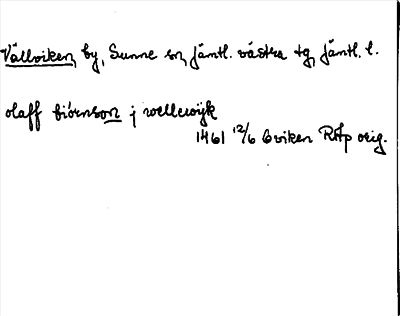 Vällviken, by, Sunne sn, Jämtl. västra tg, Jämtl. l.
olaff biörnson j wellewijk
1461 12/6 Oviken RAp orig.